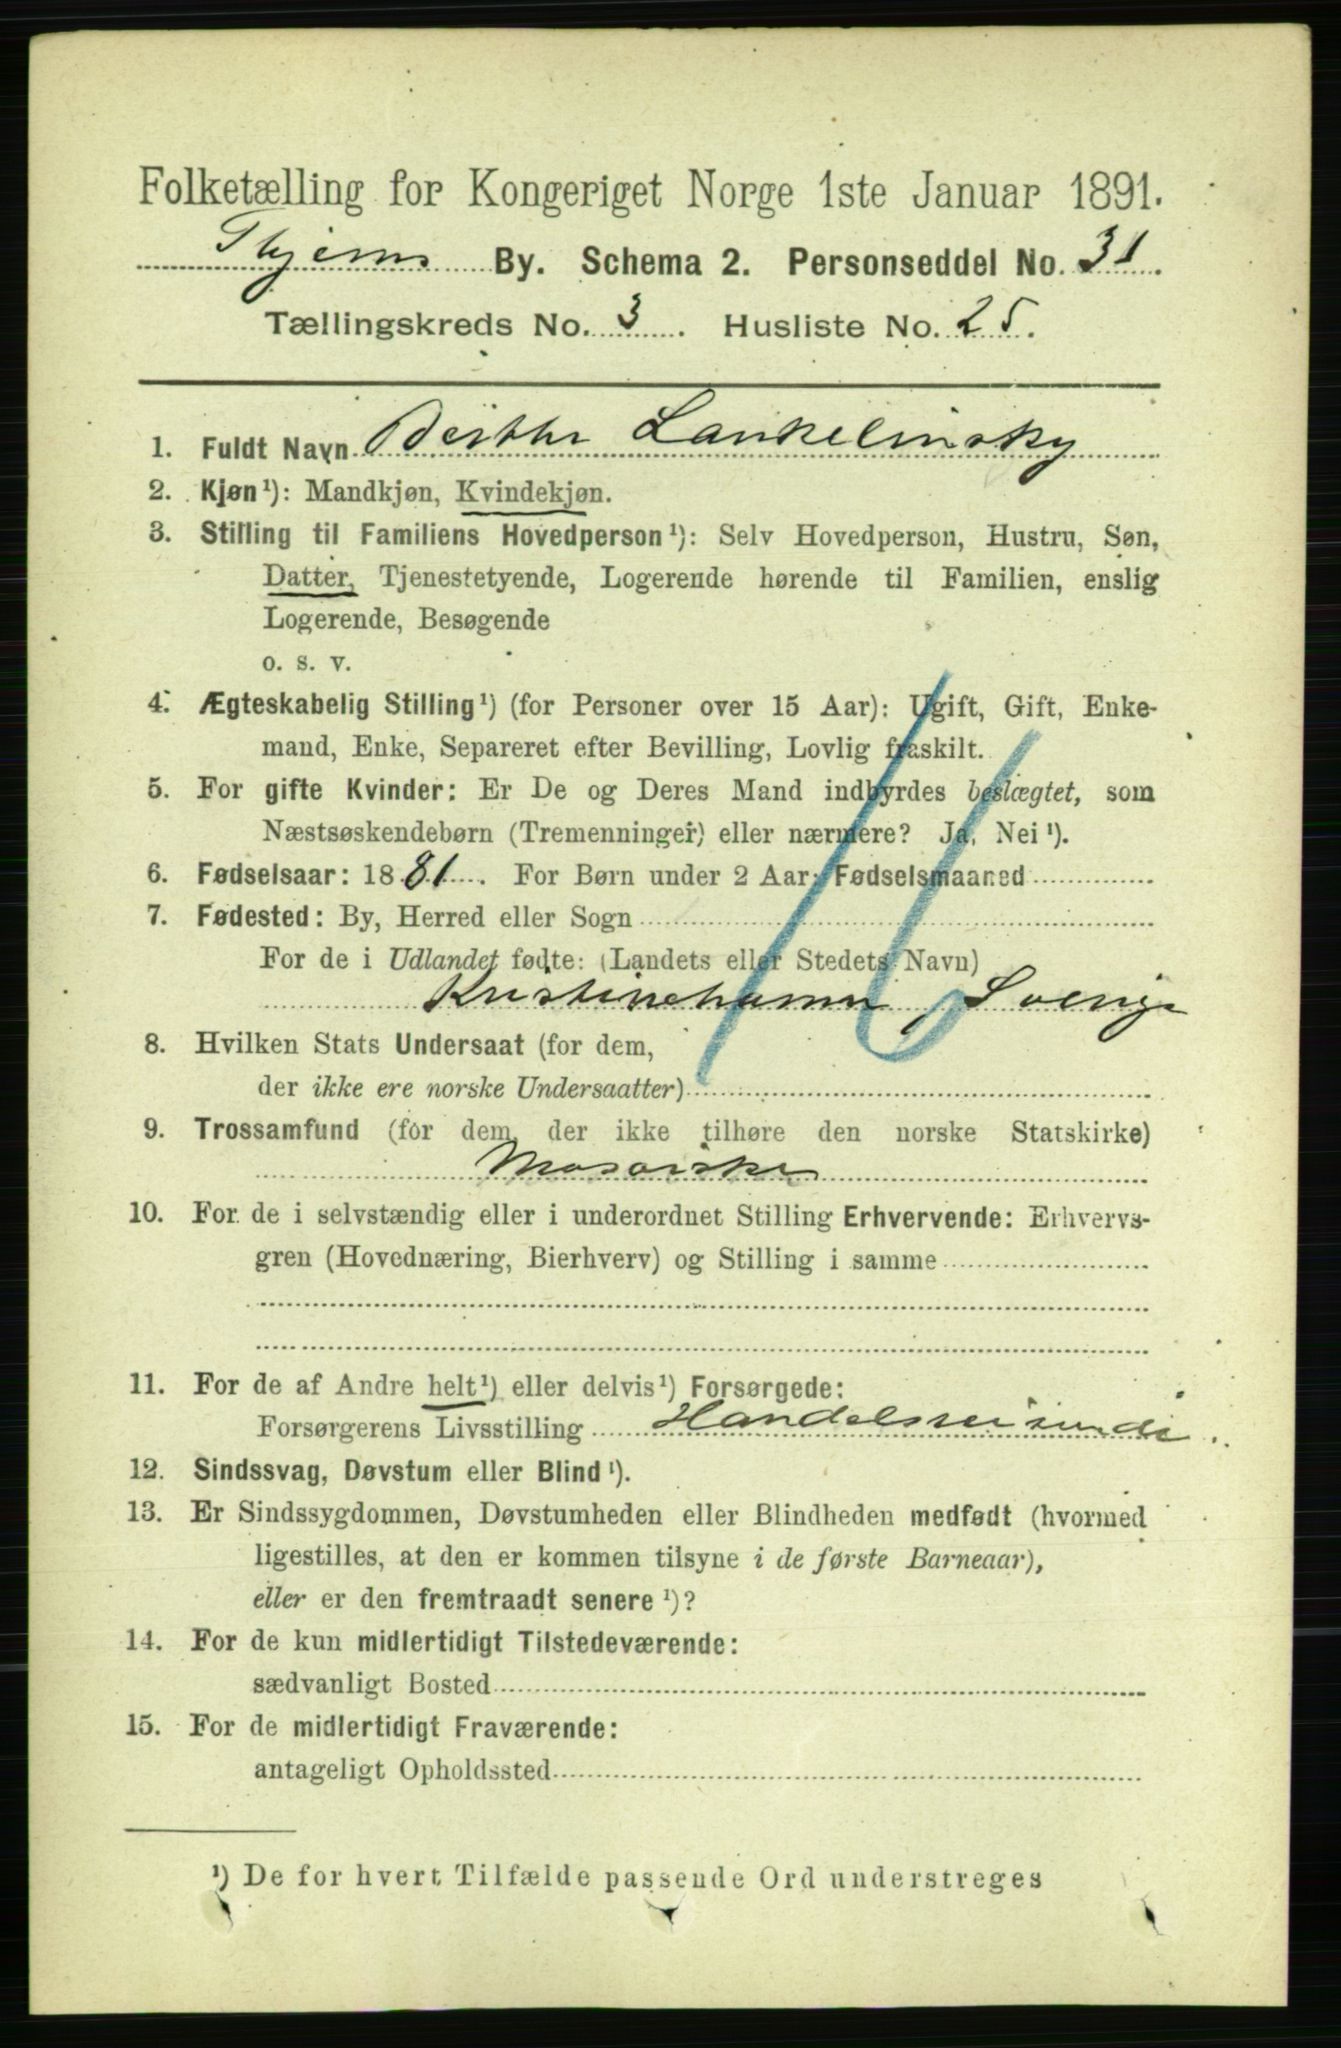 Folketælling for Kongeriget Norge 1ste Januar 1891.
By. Schema 2. Personseddel No. 31.
Tællingskreds No. 3. Husliste No. 25.
1. Fuldt Navn Berthe Lankelinsky
2. Kjøn¹): Mandkjøn, Kvindekjøn.
3. Stilling til Familiens Hovedperson¹): Selv Hovedperson, Hustru, Søn,
Datter, Tjenestetyende, Logerende hørende til Familien, enslig
Logerende, Besøgende
o. s. v.
4. Ægteskabelig Stilling¹) (for Personer over 15 Aar): Ugift, Gift, Enke-
mand, Enke, Separeret efter Bevilling, Lovlig fraskilt.
5. For gifte Kvinder: Er De og Deres Mand indbyrdes beslægtet, som
Næstsøskendebørn (Tremenninger) eller nærmere? Ja, Nei¹).
6. Fødselsaar: 1881. For Børn under 2 Aar: Fødselsmaaned
7. Fødested: By, Herred eller Sogn
For de i Udlandet fødte: (Landets eller Stedets Navn)
Kristinehamn, Sverige
8. Hvilken Stats Undersaat (for dem,
der ikke ere norske Undersaatter)
9. Trossamfund (for dem, der ikke tilhøre den norske Statskirke)
Mosaiske
10. For de i selvstændig eller i underordnet Stilling Erhvervende: Erhvervs-
gren (Hovednæring, Bierhverv) og Stilling i samme
11. For de af Andre helt¹) eller delvis¹) Forsørgede:
Forsørgerens Livsstilling Handelsreisende.
12. Sindssvag, Døvstum eller Blind¹).
13. Er Sindssygdommen, Døvstumheden eller Blindheden medfødt (hvormed
ligestilles, at den er kommen tilsyne i de første Barneaar),
eller er den fremtraadt senere¹)?
14. For de kun midlertidigt Tilstedeværende:
sædvanligt Bosted
15. For de midlertidigt Fraværende:
antageligt Opholdssted
¹) De for hvert Tilfælde passende Ord understreges